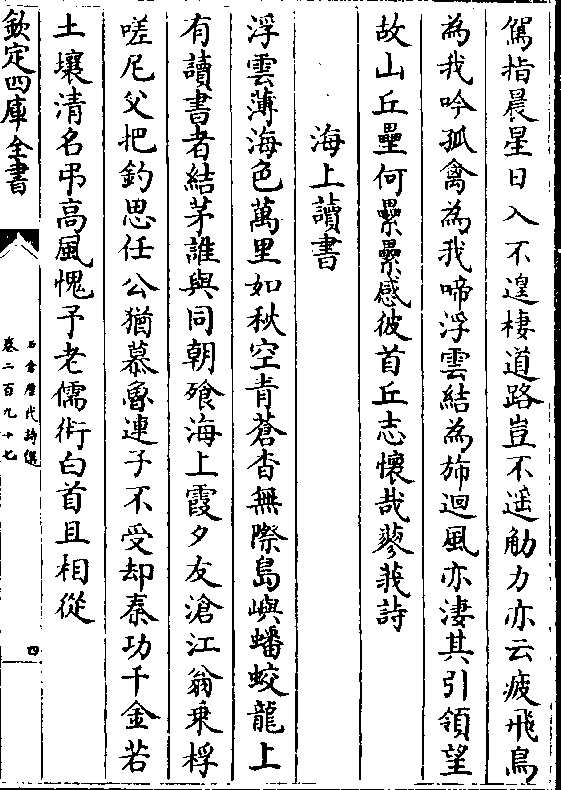 駕指晨星日入不遑棲道路豈不遥觔力亦云疲飛鳥
為我吟孤禽為我啼浮雲結為斾迴風亦淒其引領望
故山丘壘何纍纍感彼首丘志懷哉蓼莪詩
海上讀書
浮雲薄海色萬里如秋空青蒼杳無際島嶼蟠蛟龍上
有讀書者結茅誰與同朝飱海上霞夕友滄江翁乗桴
嗟尼父把釣思任公猶慕魯連子不受却秦功千金若
土壤清名弔高風愧予老儒術白首且相從
欽定四庫全書
石倉歴代詩選
卷二百九十七
四